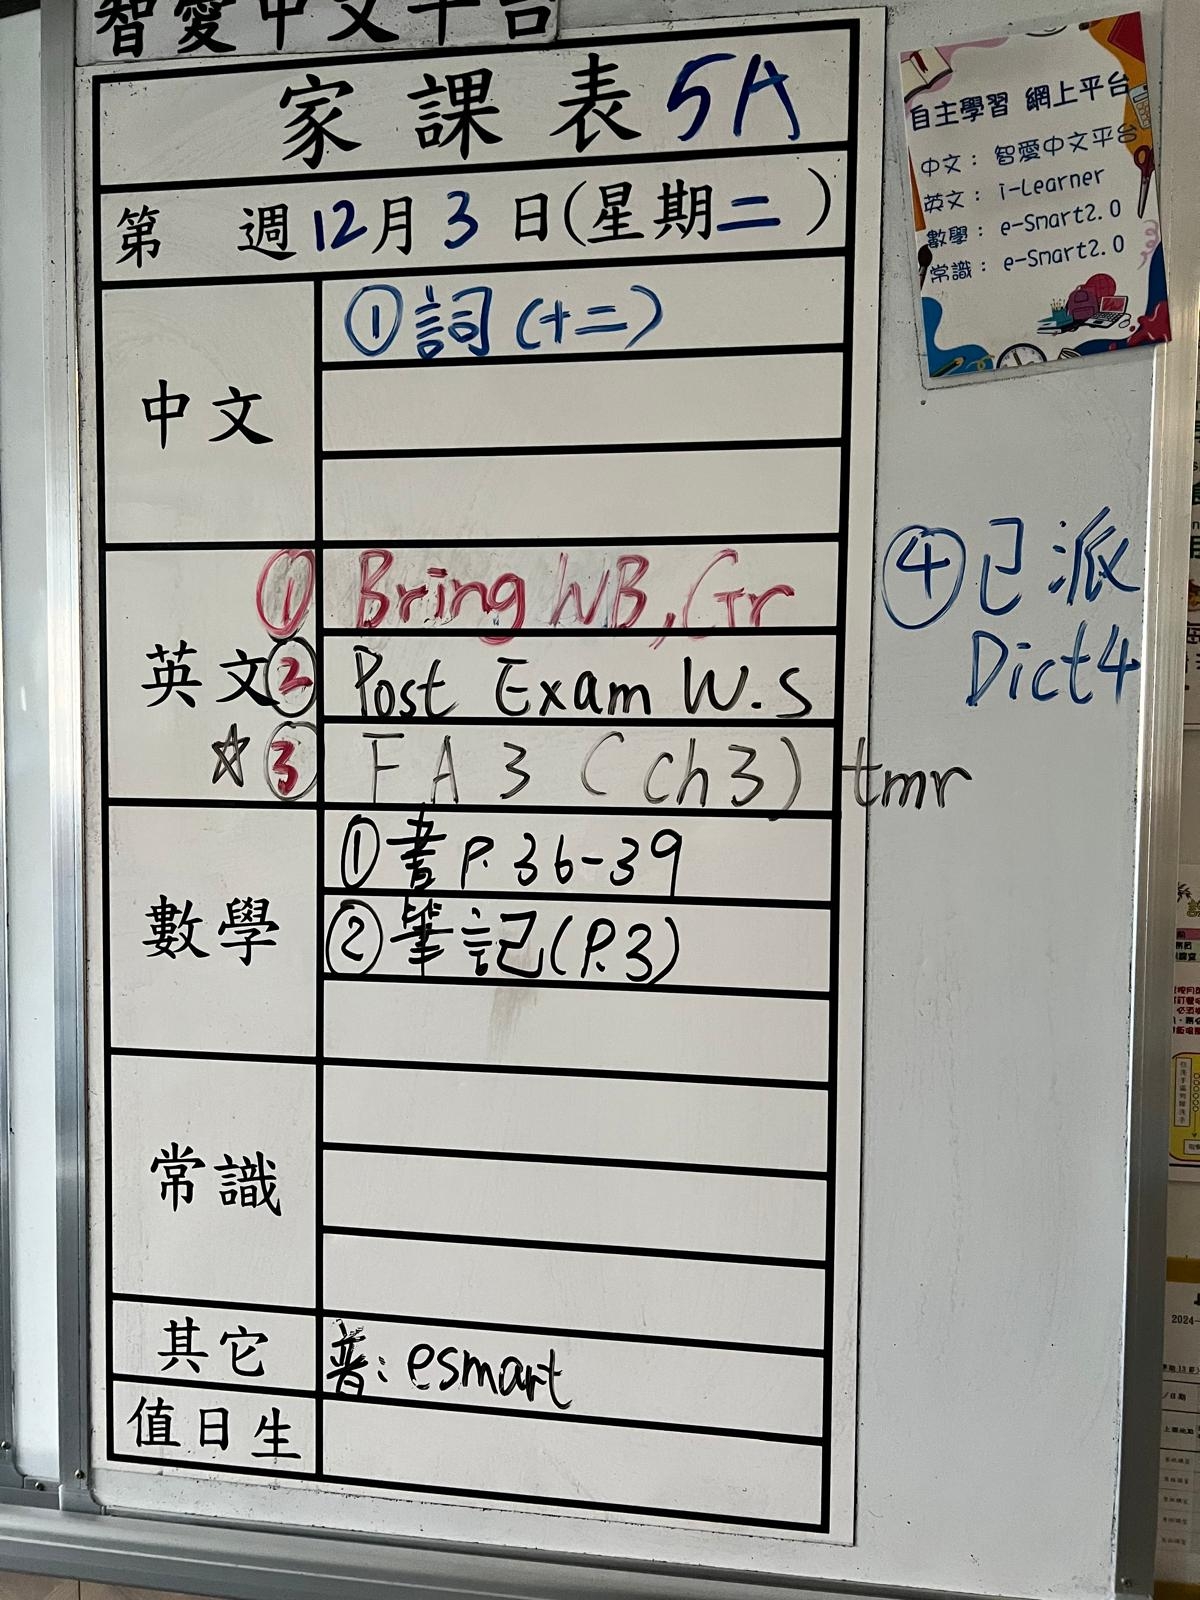 智愛中文平台
家課表 5A
第 週 12月 3 日(星期二)
中文
① 詞 (十二)
英文
① Bring WB, Gr
② Post Exam W.S
☆③ FA 3 (ch3) tmr
④ 已派
Dict4
數學
① 書 P. 36-39
② 筆記 (P.3)
常識
其它
普: esmart
值日生
自主學習 網上平台
中文： 智愛中文平台
英文： i-Learner
數學： e-Smart2.0
常識： e-Smart2.0